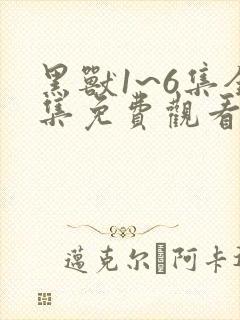 黑獸1~6集全
集免費觀看
邁克尔·阿卡